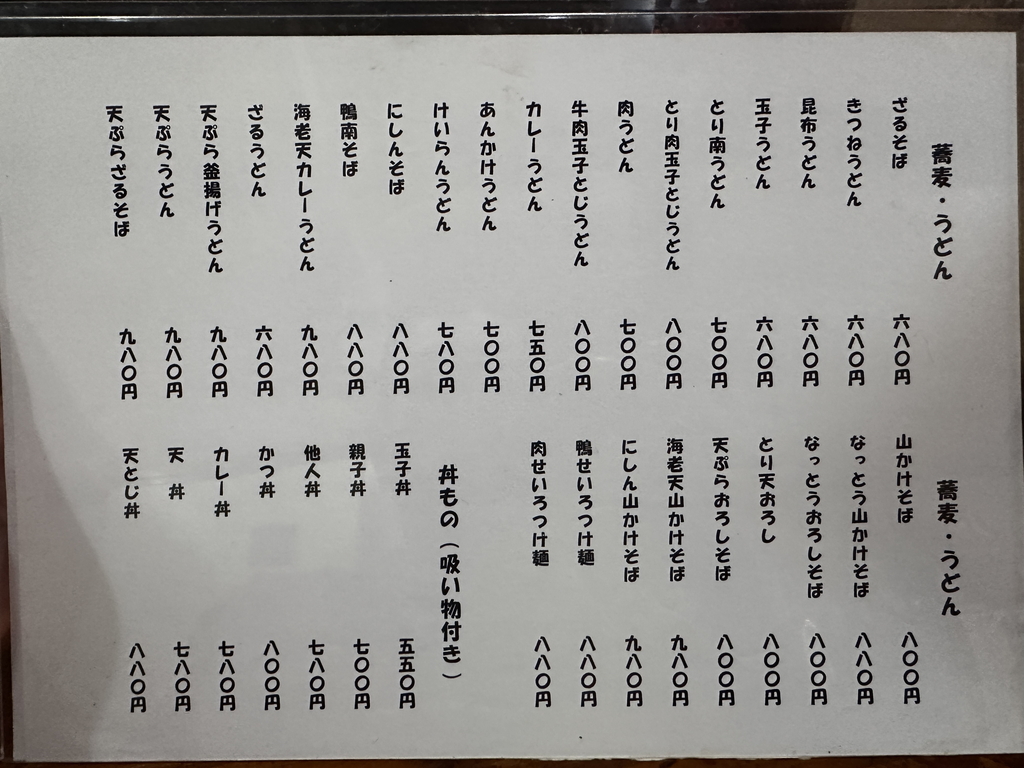 蕎麦・うどん
ざるそば 六八〇円
きつねうどん 六八〇円
昆布うどん 六八〇円
玉子うどん 六八〇円
とり南うどん 七〇〇円
とり肉玉子とじうどん 八〇〇円
肉うどん 七〇〇円
牛肉玉子とじうどん 八〇〇円
カレーうどん 七五〇円
あんかけうどん 七〇〇円
けいらんうどん 七八〇円
にしんそば 八八〇円
鴨南そば 八八〇円
海老天カレーうどん 九八〇円
ざるうどん 六八〇円
天ぷら釜揚げうどん 九八〇円
天ぷらうどん 九八〇円
天ぷらざるそば 九八〇円
蕎麦・うどん
山かけそば 八〇〇円
なっとう山かけそば 八八〇円
なっとうおろしそば 八〇〇円
とり天おろし 八〇〇円
天ぷらおろしそば 八〇〇円
海老天山かけそば 九八〇円
にしん山かけそば 九八〇円
鴨せいろつけ麺 八八〇円
肉せいろつけ麺 八八〇円
丼もの（吸い物付き）
玉子丼 五五〇円
親子丼 七〇〇円
他人丼 七八〇円
かつ丼 八〇〇円
カレー丼 七八〇円
天 丼 七八〇円
天とじ丼 八八〇円